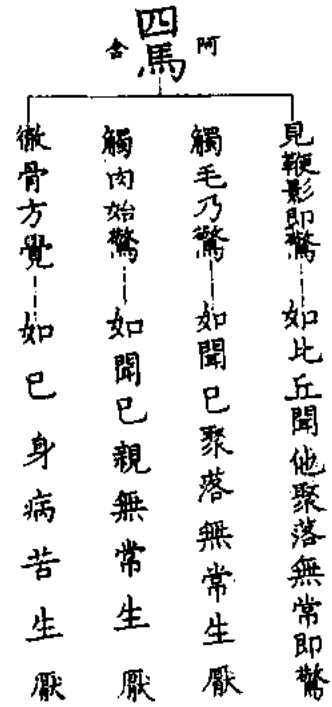 四馬
阿含
見鞭影即驚——如比丘聞他聚落無常即驚
觸毛乃驚——如聞已聚落無常生厭
觸肉始驚——如聞已親無常生厭
徹骨方覺——如已身病苦生厭